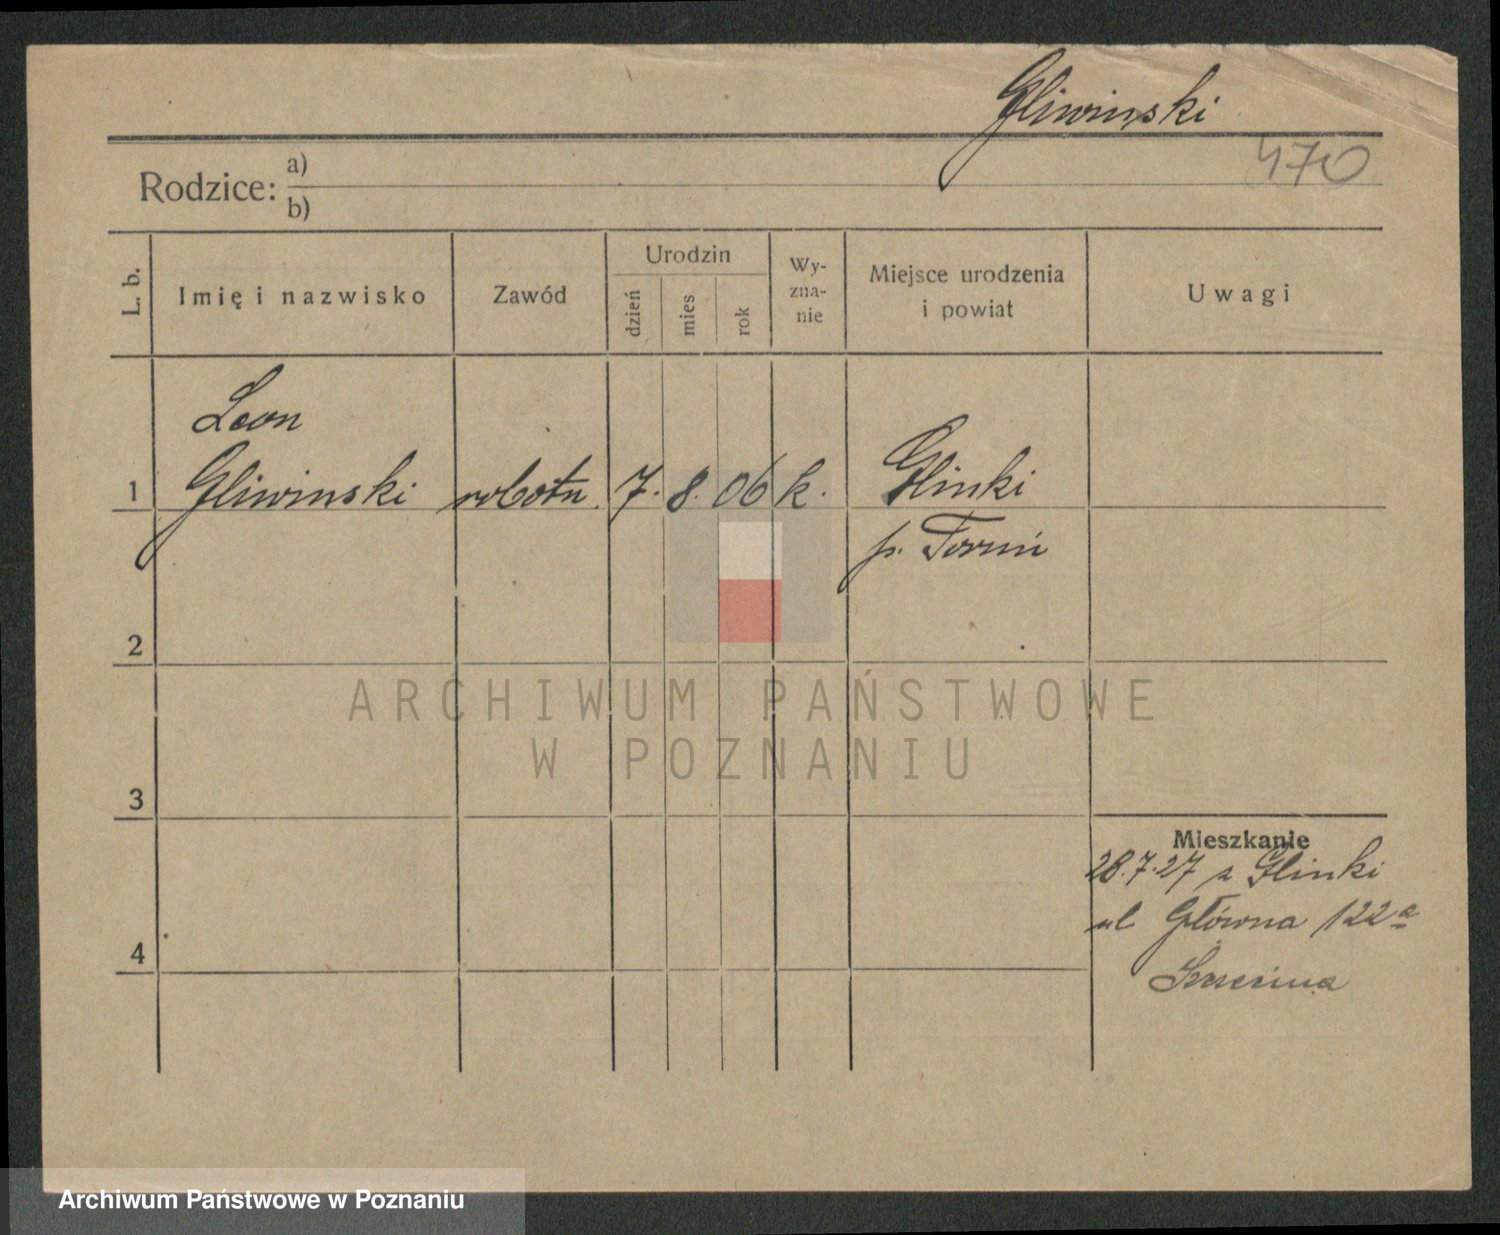 Gliwinski
470
Rodzice: a)
b)
L. b.
Imię i nazwisko
Zawód
Urodzin
dzień
mies
rok
Wy-
zna-
nie
Miejsce urodzenia
i powiat
Uwagi
Leon
1 Gliwinski robotn. 7. 8. 06 k. Glinki
p. Toruń
2
3
4
Mieszkanie
28.7.27 z Glinki
ul Główna 122a
ARCHIWUM PAŃSTWOWE
W POZNANIU
Archiwum Państwowe w Poznaniu